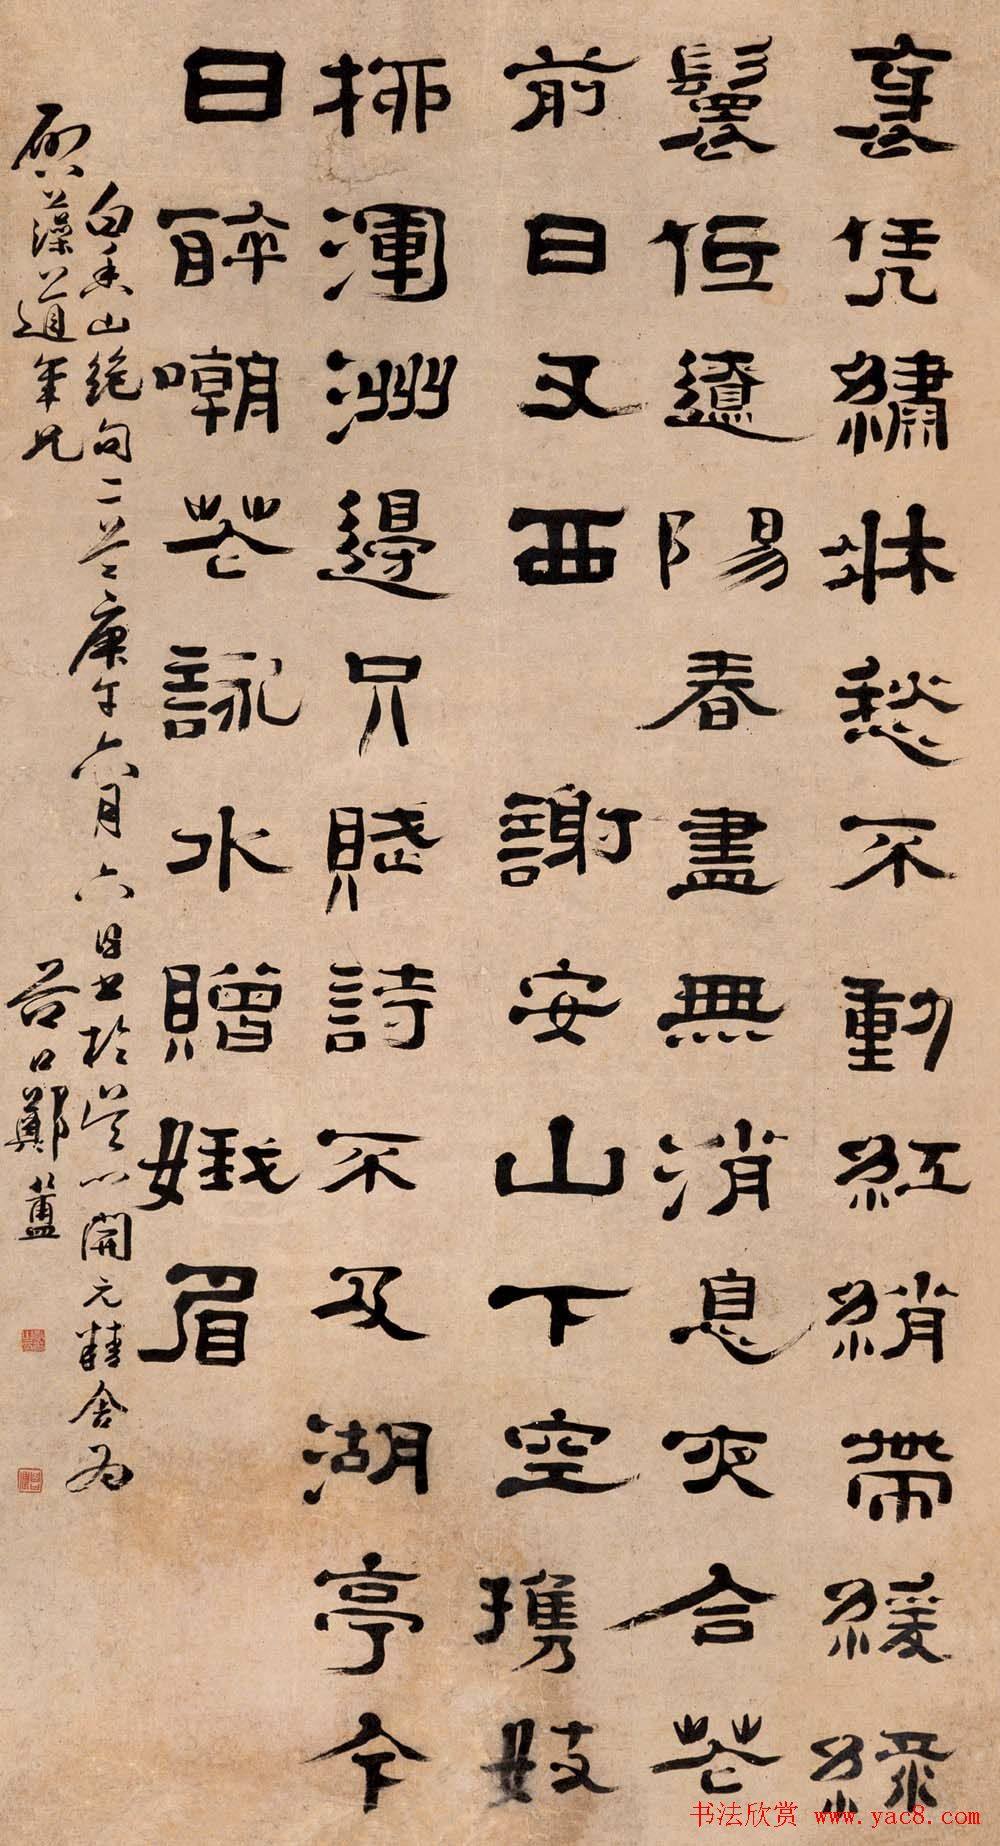 衺凭繡牀愁不動紅綃帶緩綠
鬟低遼陽春盡無消息夜合花
前日又西　謝安山下空攜妓
柳渾洲邊只賦詩不及湖亭今
日醉嘲花詠水贈娥眉
白香山絕句二首庚午六月六日書於吳門開元精舍為
藻道年兄　谷口鄭簠
书法欣赏 www.yac8.com